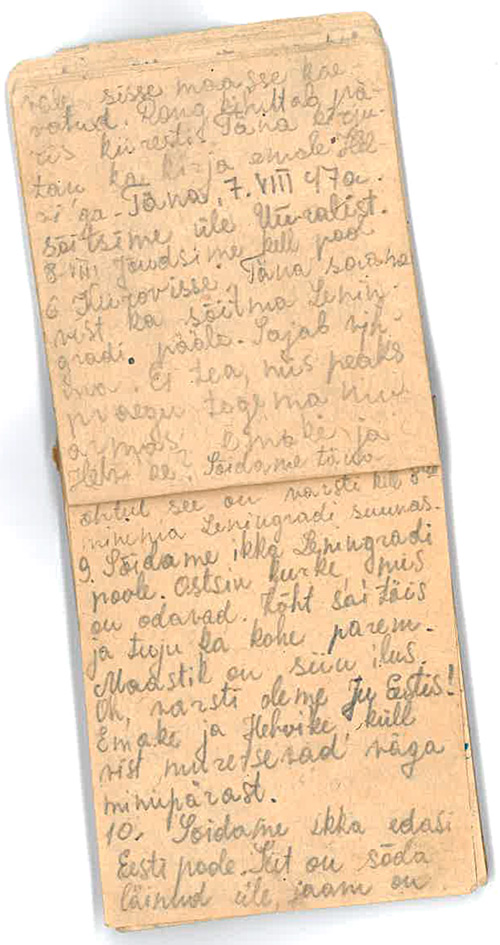 sisse maasse kae-
vatud. Rong kihutab pä-
ris kiiresti. Täna kirju-
tan ka kirja emale Hel-
vi'ga. Täna, 7. VIII 47 a.
sõitsime üle Uuralist.
8 VIII jõudsime kell pool
6 Kirovisse. Täna saame
vist ka sõitma Lenin-
gradi pääle. Sajab vih-
ma. Ei tea, mis peaks
praegu tegema minu
armas Emake ja
Helvi ee? Sõidame täna
õhtul see on varsti kell
minema Leningradi suunas.
9. Sõidame ikka Leningradi
poole. Ostsin kurke, mis
on odavad. Kõht sai täis
ja tuju ka kohe parem.
Maastik on siin ilus.
Oh, varsti oleme ju Eestis!
Emake ja Helvike küll
vist muretsevad väga
minupärast.
10. Sõidame ikka edasi
Eesti poole. Siit on sõda
läinud üle, jaam on